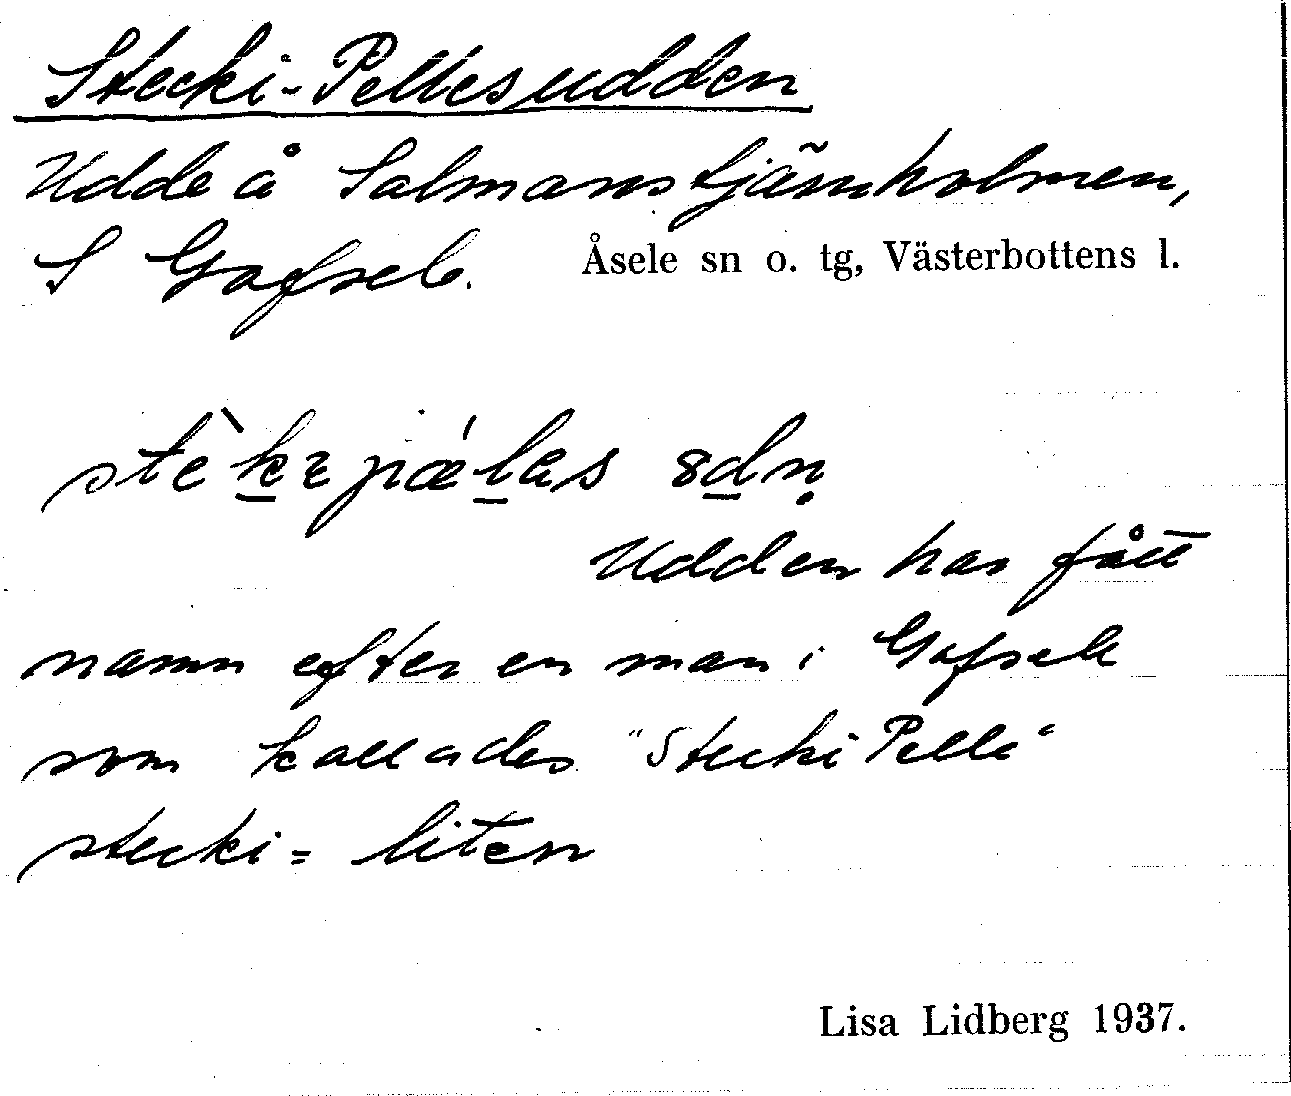 Stecki-Pellesudden
Udde å Salmanstjärnholmen,
S Gafsele. Åsele sn o. tg, Västerbottens l.
Udden har fått
namn efter en man i Gafsele
som kallades "Stecki Pelle"
stecki = liten
Lisa Lidberg 1937.